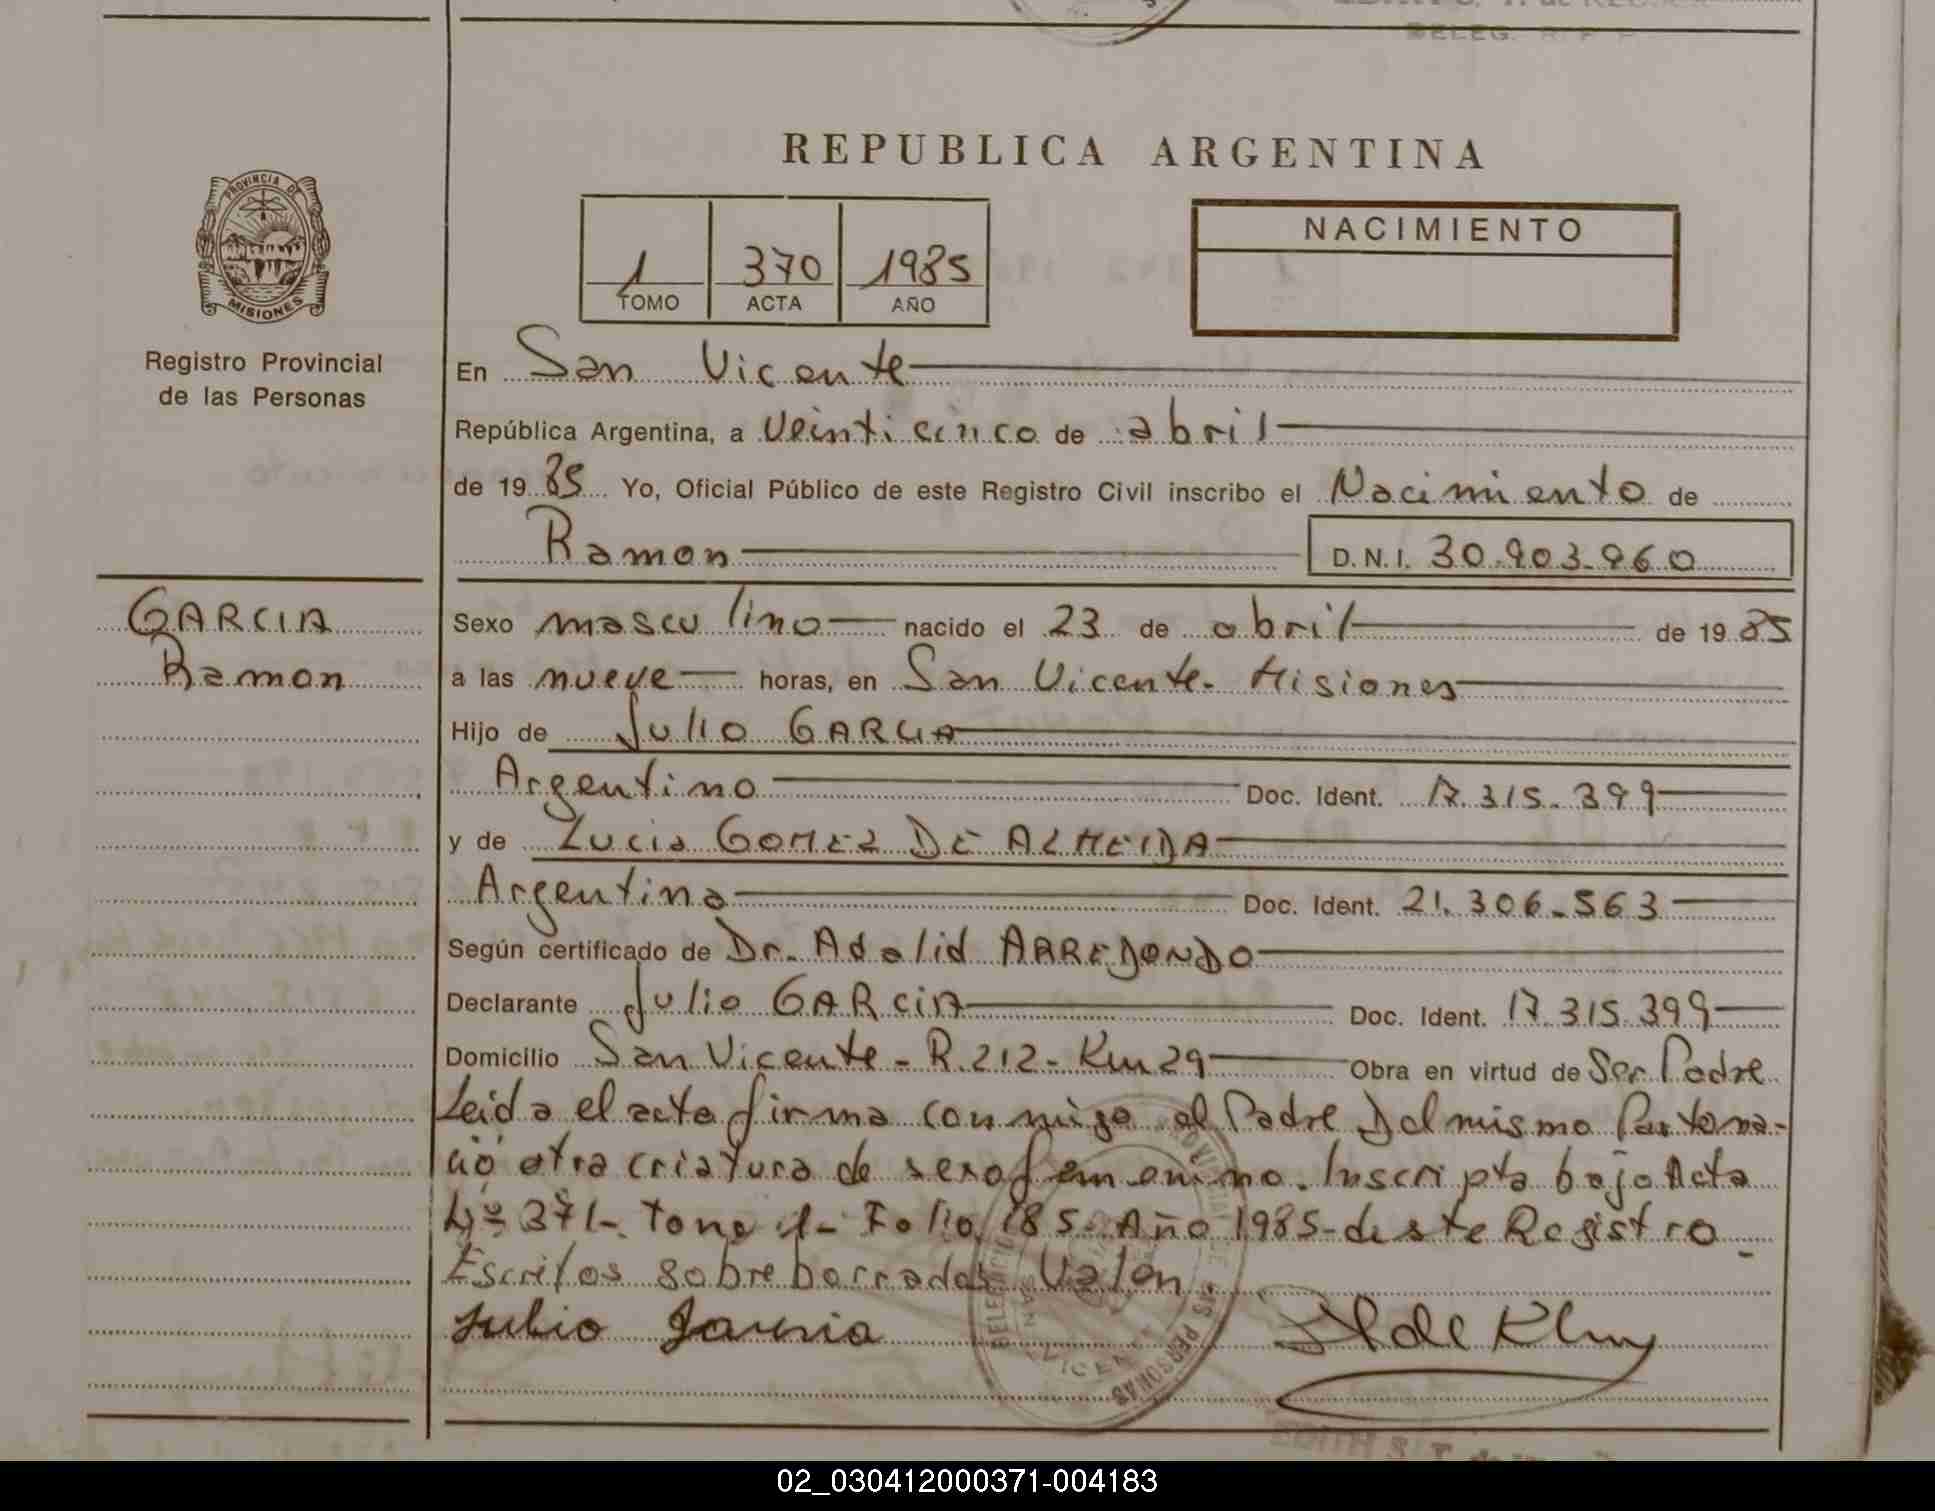 REPUBLICA ARGENTINA
PROVINCIA DE MISIONES
Registro Provincial
de las Personas
1 370 1985
TOMO ACTA AÑO
NACIMIENTO
En San Vicente
República Argentina, a veinticinco de abril
de 19 85 Yo, Oficial Público de este Registro Civil inscribo el Nacimiento de
Ramon D.N.I. 30.903.960
GARCIA
Ramon
Sexo masculino nacido el 23 de abril de 19 85
a las nueve horas, en San Vicente - Misiones
Hijo de Julio GARCIA
Argentino Doc. Ident. 17.315.399
y de Lucia GOMEZ DE ALMEIDA
Argentina Doc. Ident. 21.306.563
Según certificado de Dr. Adalid ARREDONDO
Declarante Julio GARCIA Doc. Ident. 17.315.399
Domicilio San Vicente - R.212 - Km 29 Obra en virtud de Ser Padre
Leida el acta firma conmigo el Padre Del mismo Parto na-
ció otra criatura de sexo femenino. Inscripta bajo Acta
Nº 371 - Tomo 1 - Folio 185 - Año 1985 - deste Registro
Escritos sobre borrados Valen
Julio Garcia
02_030412000371-004183